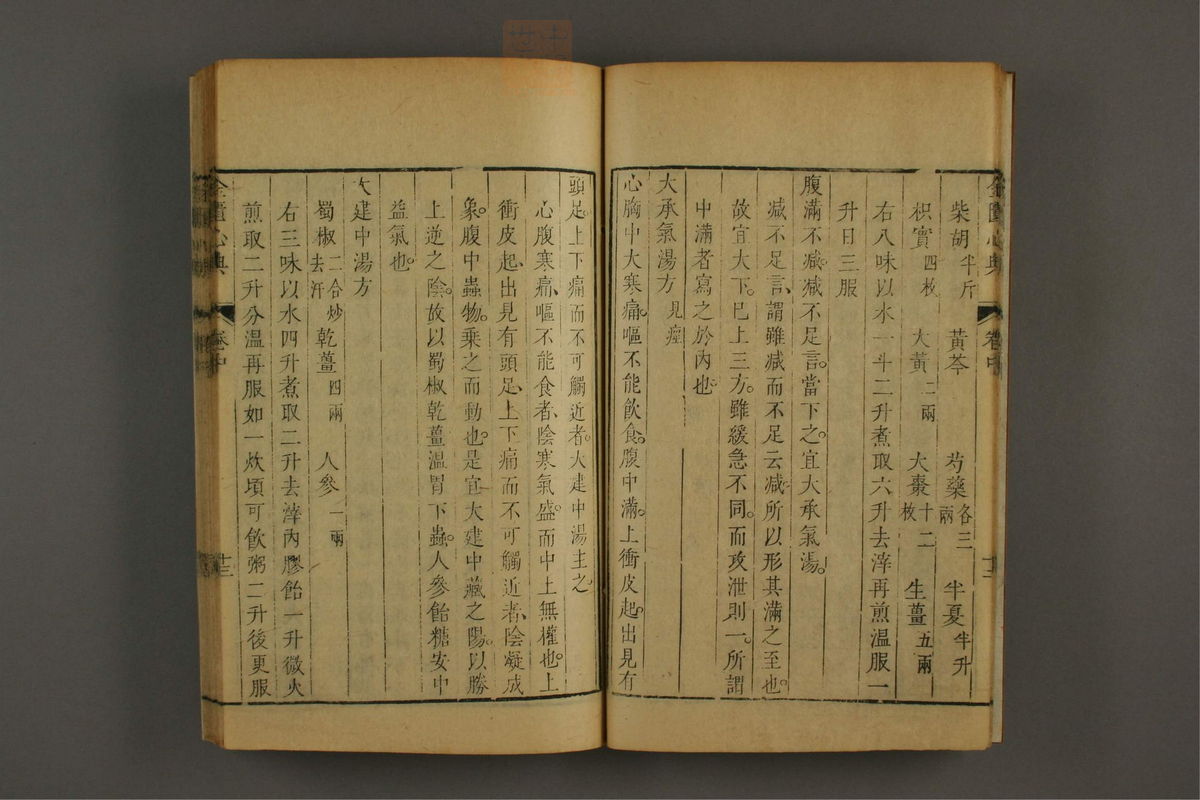 柴胡半斤 黃芩 芍藥各三兩 半夏半升
枳實四枚 大黃二兩 大棗十二枚 生薑五兩
右八味以水一斗二升煮取六升去滓再煎溫服一
升日三服
腹滿不减减不足言當下之宜大承氣湯
减不足言謂雖减而不足云减所以形其滿之至也
故宜大下巳上三方雖緩急不同而攻泄則一所謂
中滿者寫之於內也
大承氣湯方 見痙
心胸中大寒痛嘔不能飲食腹中滿上衝皮起出見有
頭足上下痛而不可觸近者大建中湯主之
心腹寒痛嘔不能食者陰寒氣盛而中土無權也上
衝皮起出見有頭足上下痛而不可觸近者陰凝成
象腹中蟲物乘之而動也是宜大建中藏之陽以勝
上逆之陰故以蜀椒乾薑溫胃下蟲人參飴糖安中
益氣也
大建中湯方
蜀椒二合炒去汗 乾薑四兩 人參一兩
右三味以水四升煮取二升去滓內膠飴一升微火
煎取二升分溫再服如一炊頃可飲粥二升後更服
金匱心典
卷中